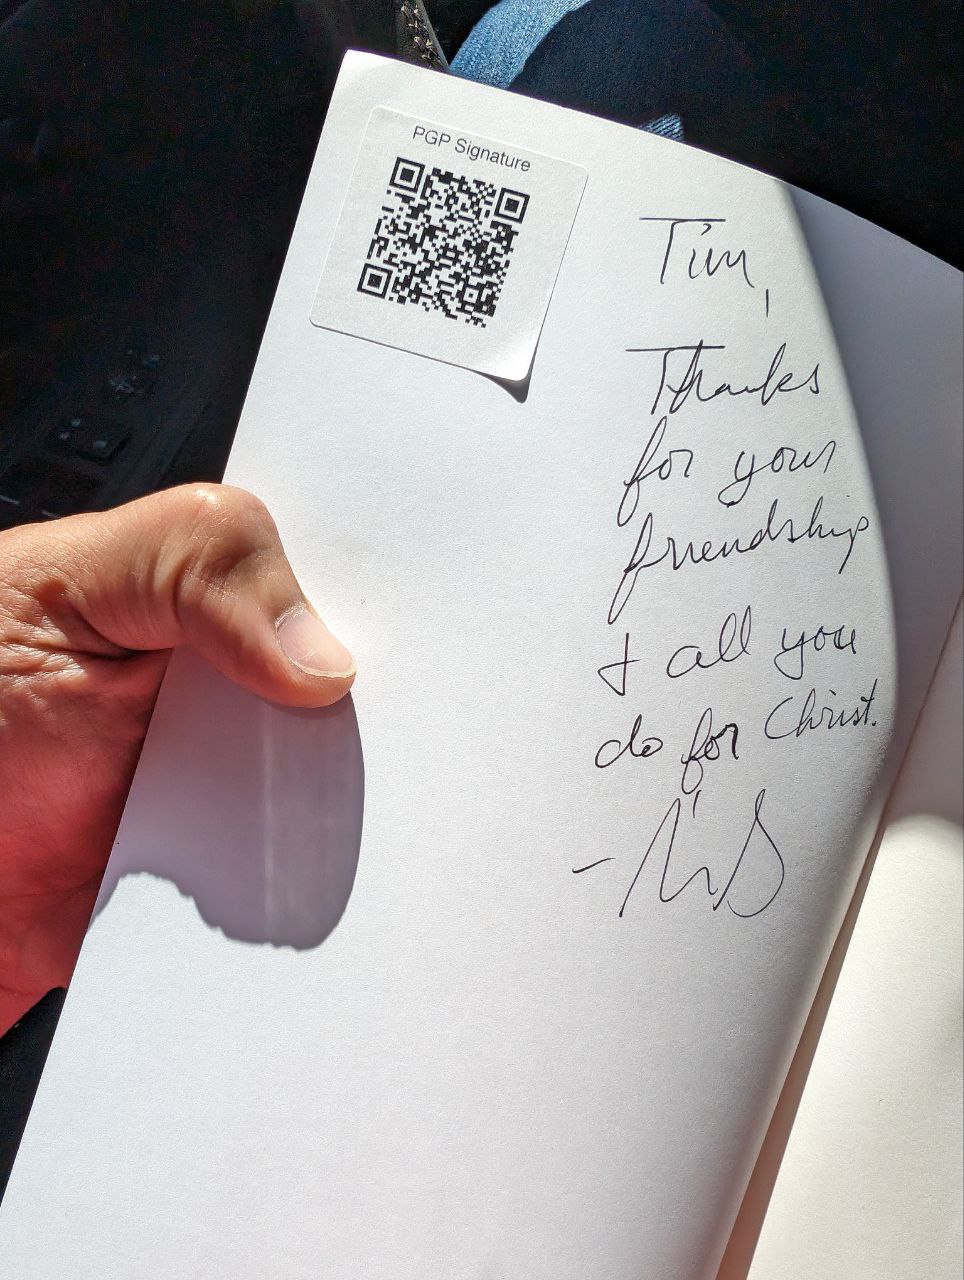 PGP Signature
Tim,
Thanks
for your
friendship
& all you
do for Christ.